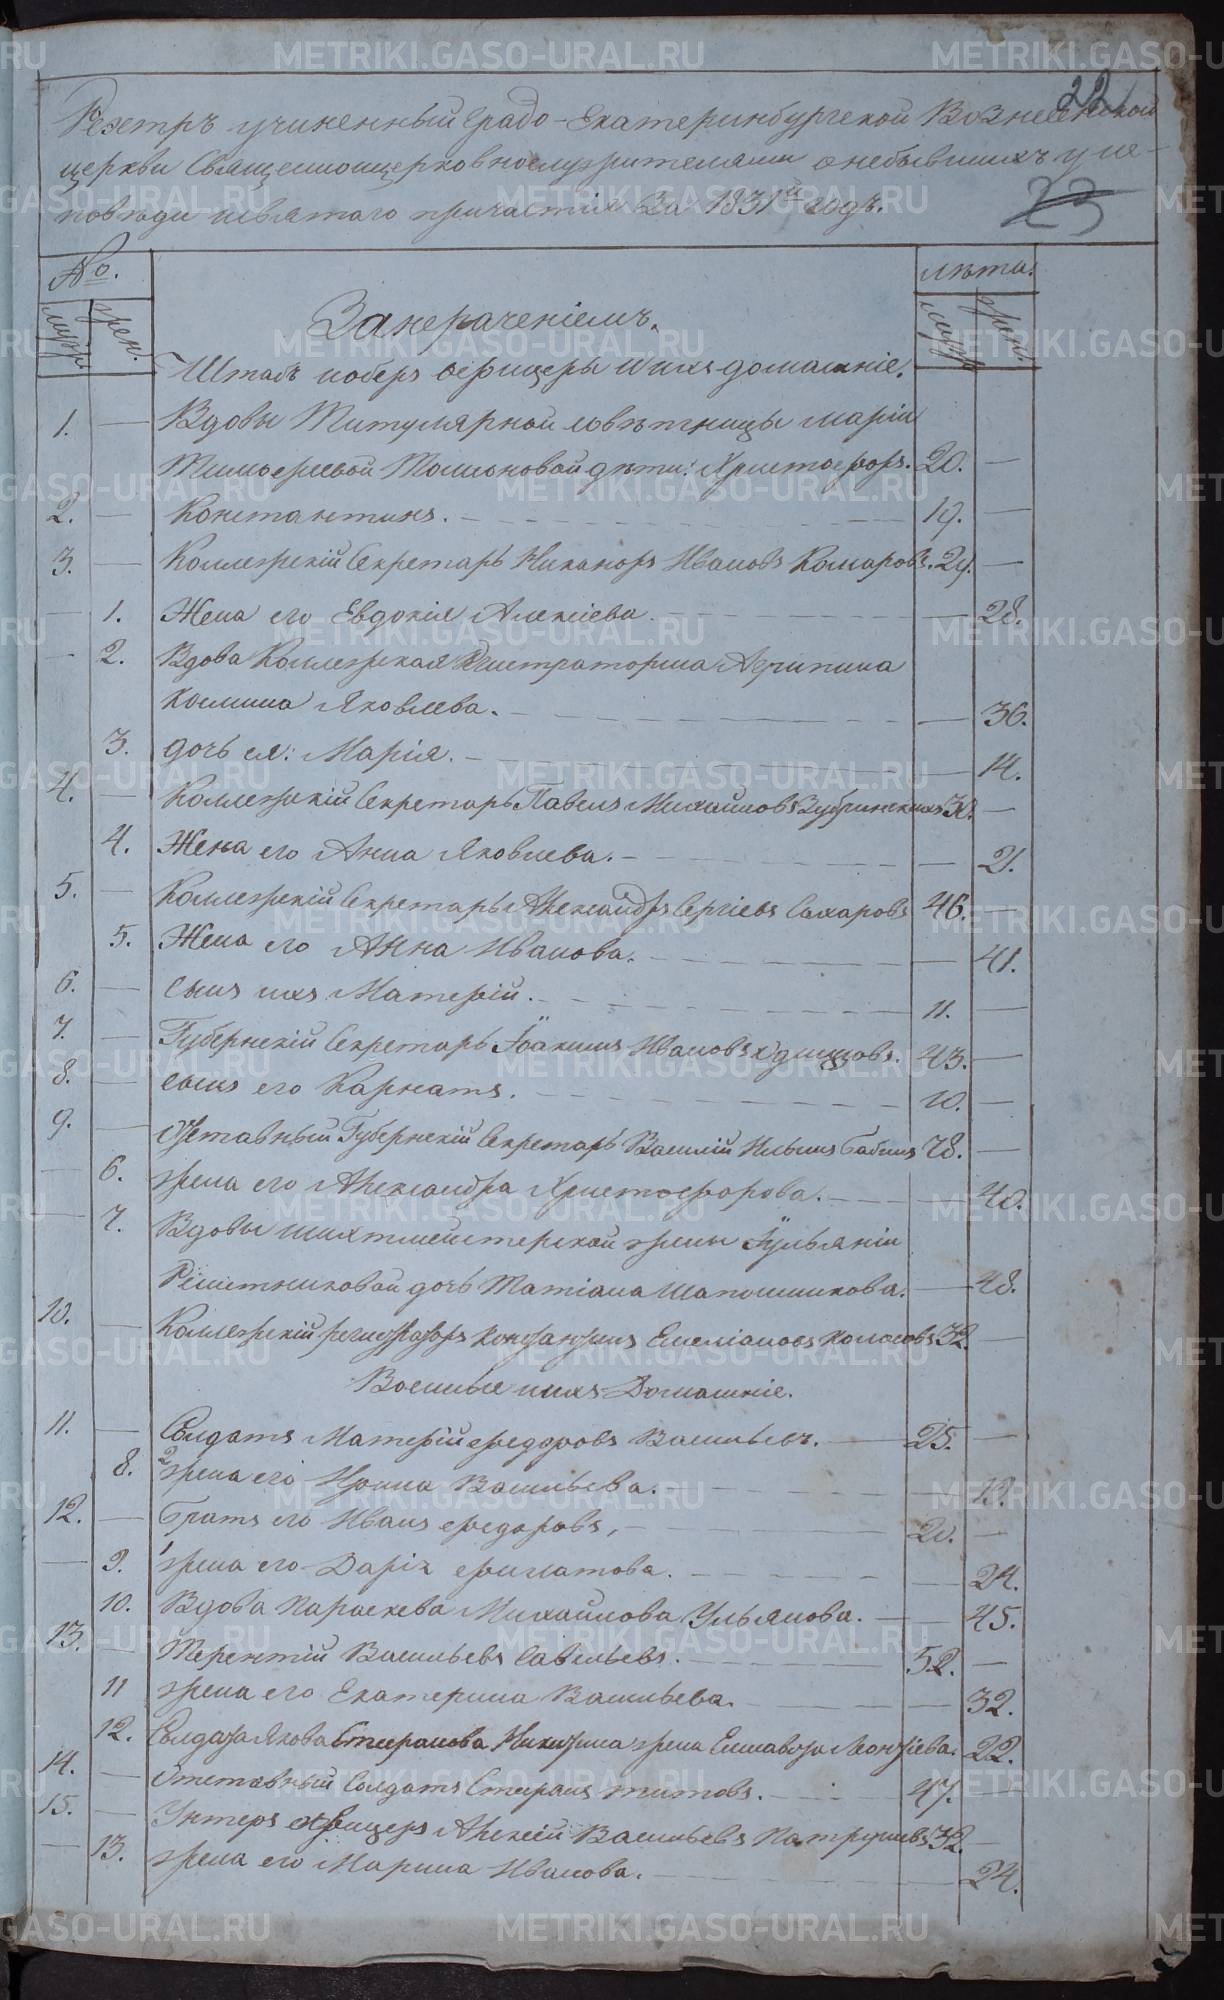 22
Реэстръ учиненный Градо-Екатеринбургской Вознесенской
церкви Священноцерковнослужителями о небывшихъ у ис-
поведи исвятаго причастія За 1831й годъ.
23
№. лѣта.
муж. жен. муж. жен.
За нерачениемъ.
Штабъ иоберъ офицеры иихъ домашніе.
1. — Вдовы Титулярной совѣтницы Маріи
Тимофеевой дѣти: Христофоръ. 20. —
2. — Константинъ. 19. —
3. — Коллежскій Секретарь Никаноръ Ивановъ Комаровъ. 29. —
— 1. Жена его Евдокія Алексіева. — 28.
— 2. Вдова Коллежская Регистраторша Агрипина
Яковлева. — 36.
3. дочь ея: Марія. — 14.
4. — Коллежскій Секретарь Павелъ Михайловъ 30. —
4. Жена его Анна Яковлева. — 21.
5. — Коллежскій Секретарь Александръ Сергіевъ Сахаровъ 46. —
5. Жена его Анна Иванова. — 41.
6. — сынъ ихъ Матфій. 11. —
7. — Губернскій Секретарь Іоакимъ Ивановъ Удинцовъ. 43. —
8. — сынъ его 10. —
9. — Отставный Губернскій Секретарь Василій Ильинъ Бабинъ 78. —
— 6. жена его Александра Христофорова. — 40.
— 7. Вдовы шихтмейстерской жены Іульяніи
Решетниковой дочь Татіана Шапошникова. — 48.
10. — Коллежскій регистраторъ Константинъ Емеліановъ Колосовъ 32. —
Военные иихъ Домашніе.
11. — Солдатъ Матфій Федоровъ Васильевъ. — 25. —
8. 2 жена его Ирина Васильева. — 19.
12. — братъ его Иванъ Федоровъ, — 20. —
— 9. 1 жена его Дарія Филатова. — 24.
10. Вдова Параскева Михайлова Ульянова. — 45.
13. — Терентій Васильевъ Савельевъ. 52. —
11 жена его Екатерина Васильева. — 32.
12. Солдата Якова Стефанова Никитина жена Елисавета Леонтіева. 22.
14. Отставный Солдатъ Стефанъ Титовъ. 47. —
15. — Унтеръ офицеръ Алексій Васильевъ Патрушевъ 32. —
— 13. жена его Марина Иванова. — 24.
METRIKI.GASO-URAL.RU